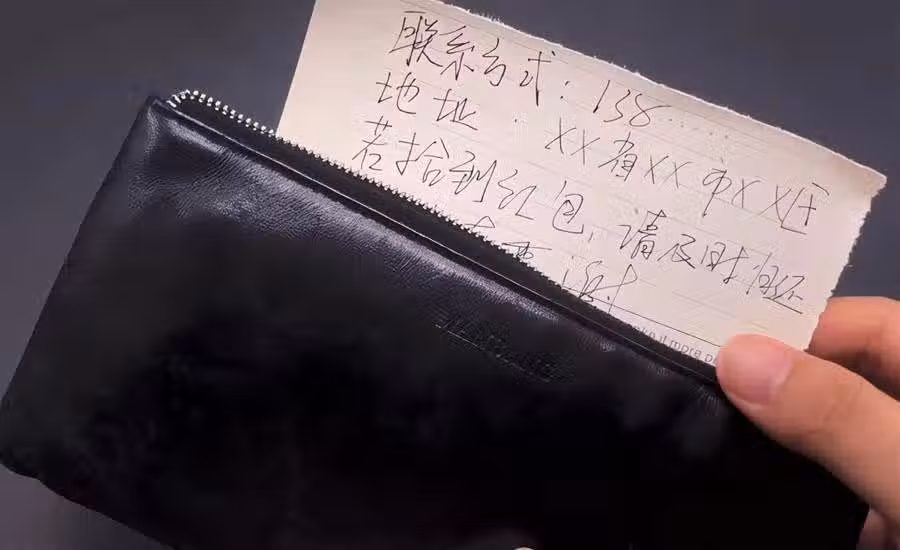 联系方式：138......
地址：XX省XX市XX区
若拾到红包，请及时归还
重谢
make it more p